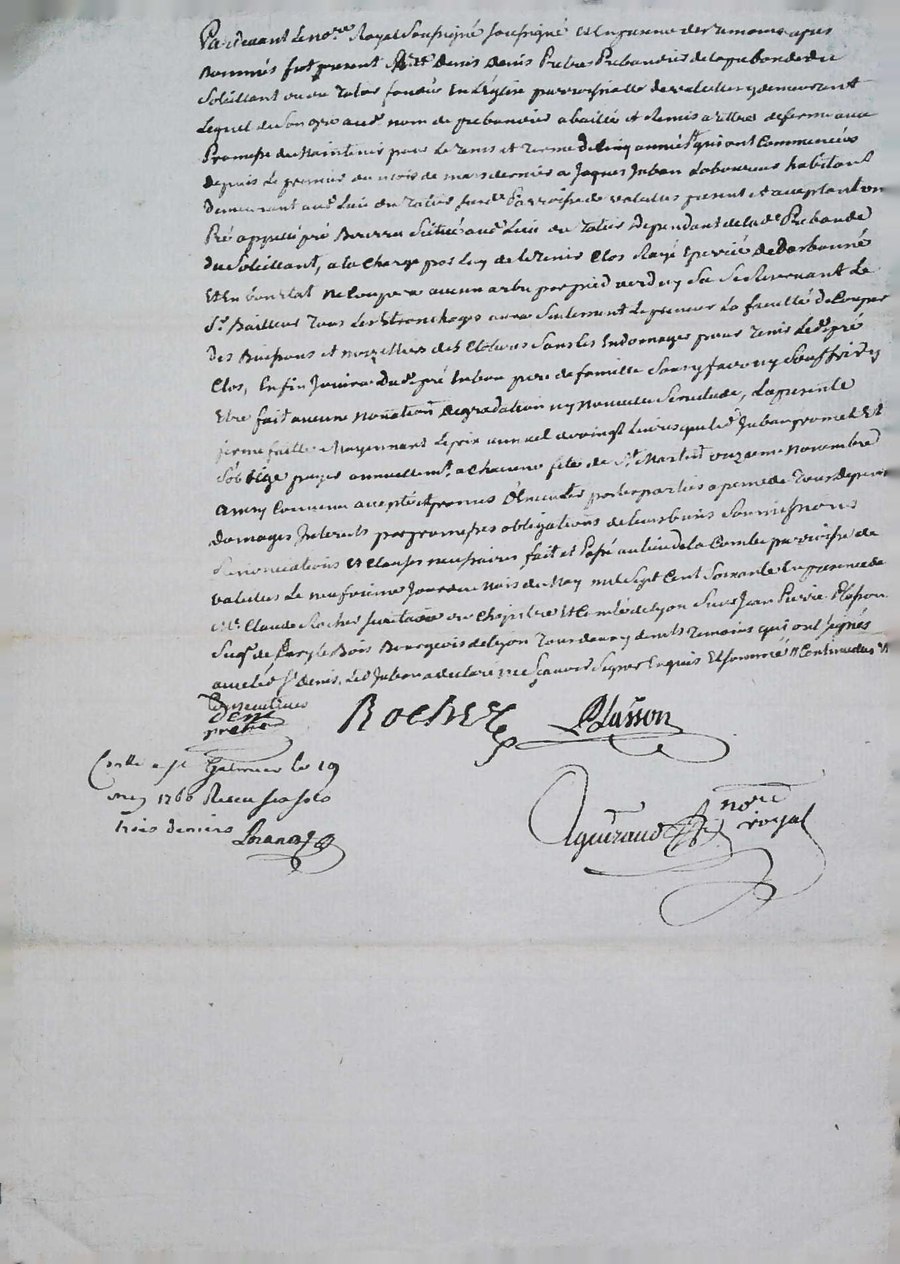 Pardevant Le no.re Royal Soussigné soussigné et En presence des Temoins apres
Nommés fut present M.re denis denis Prebtre Prebandier de la prebande du
Soleillant ou du Tales fondée En L'Eglise parroissialle de valeilles y demeurant
Lequel de Son gre aud. nom de prebandier a baillé et Remis a Titre de ferme avec
Promesse de Maintenir pour Le Tems et Terme de Cinq années qui ont Commencées
depuis Le premier du mois de mars dernier a Jaques Juban Laboureur habitant
demeurant aud. Lieu du Tales sud. Parroisse de valeilles present et acceptant un
Pré appellé pré Situé aud. Lieu du Tales Dependant de la d. Prebande
du Soleillant, a la Charge par Luy de le Tenir Clos
Et En bon Etat Ne Couper aucun arbre par pied verd ny Sec Reservant Le
S.r Bailleur Tous Les aura Seulement Le preneur La faculté de Couper
des Buissons et des Clotures Sans les Endomager pour Tenir Led. pré
Clos, Enfin Jouira Dud. pré en bon pere de famille Sans y faire ny Souffrir y
Etre fait aucune Degradation ny Nouvelle Servitude, La presente
ferme faitte Moyennant Le prix annuel de vingt Livres que led. Juban promet Et
S'oblige payer annuellem.t a Chacune fete de S.t Martin onze Novembre
Ainsy Convenu accepté et promis par les parties a peine de Tous depens
domages Interets par promesses obligations de leurs biens Soumissions
Renonciations Et Clauses necessaires fait et Passé au lieu de la Combe parroisse de
valeilles Le neufvieme Jour du Mois de May mil Sept Cent Soixante En presence de
M.e Claude Rocher du Chapitre Et Comté de Lyon Sieur Jean Pierre Plasson
Bourgeois de Lyon Temoins qui ont signés
avec led. S.r denis, Led. Juban a declaré ne Scavoir Signer Enquis Et Sommé

DENIS
prebtre
ROCHER
Plasson
Conllé a S.t Galmier le 19
may 1760 Receu six sols
trois deniers
Agniraud no.re
royal